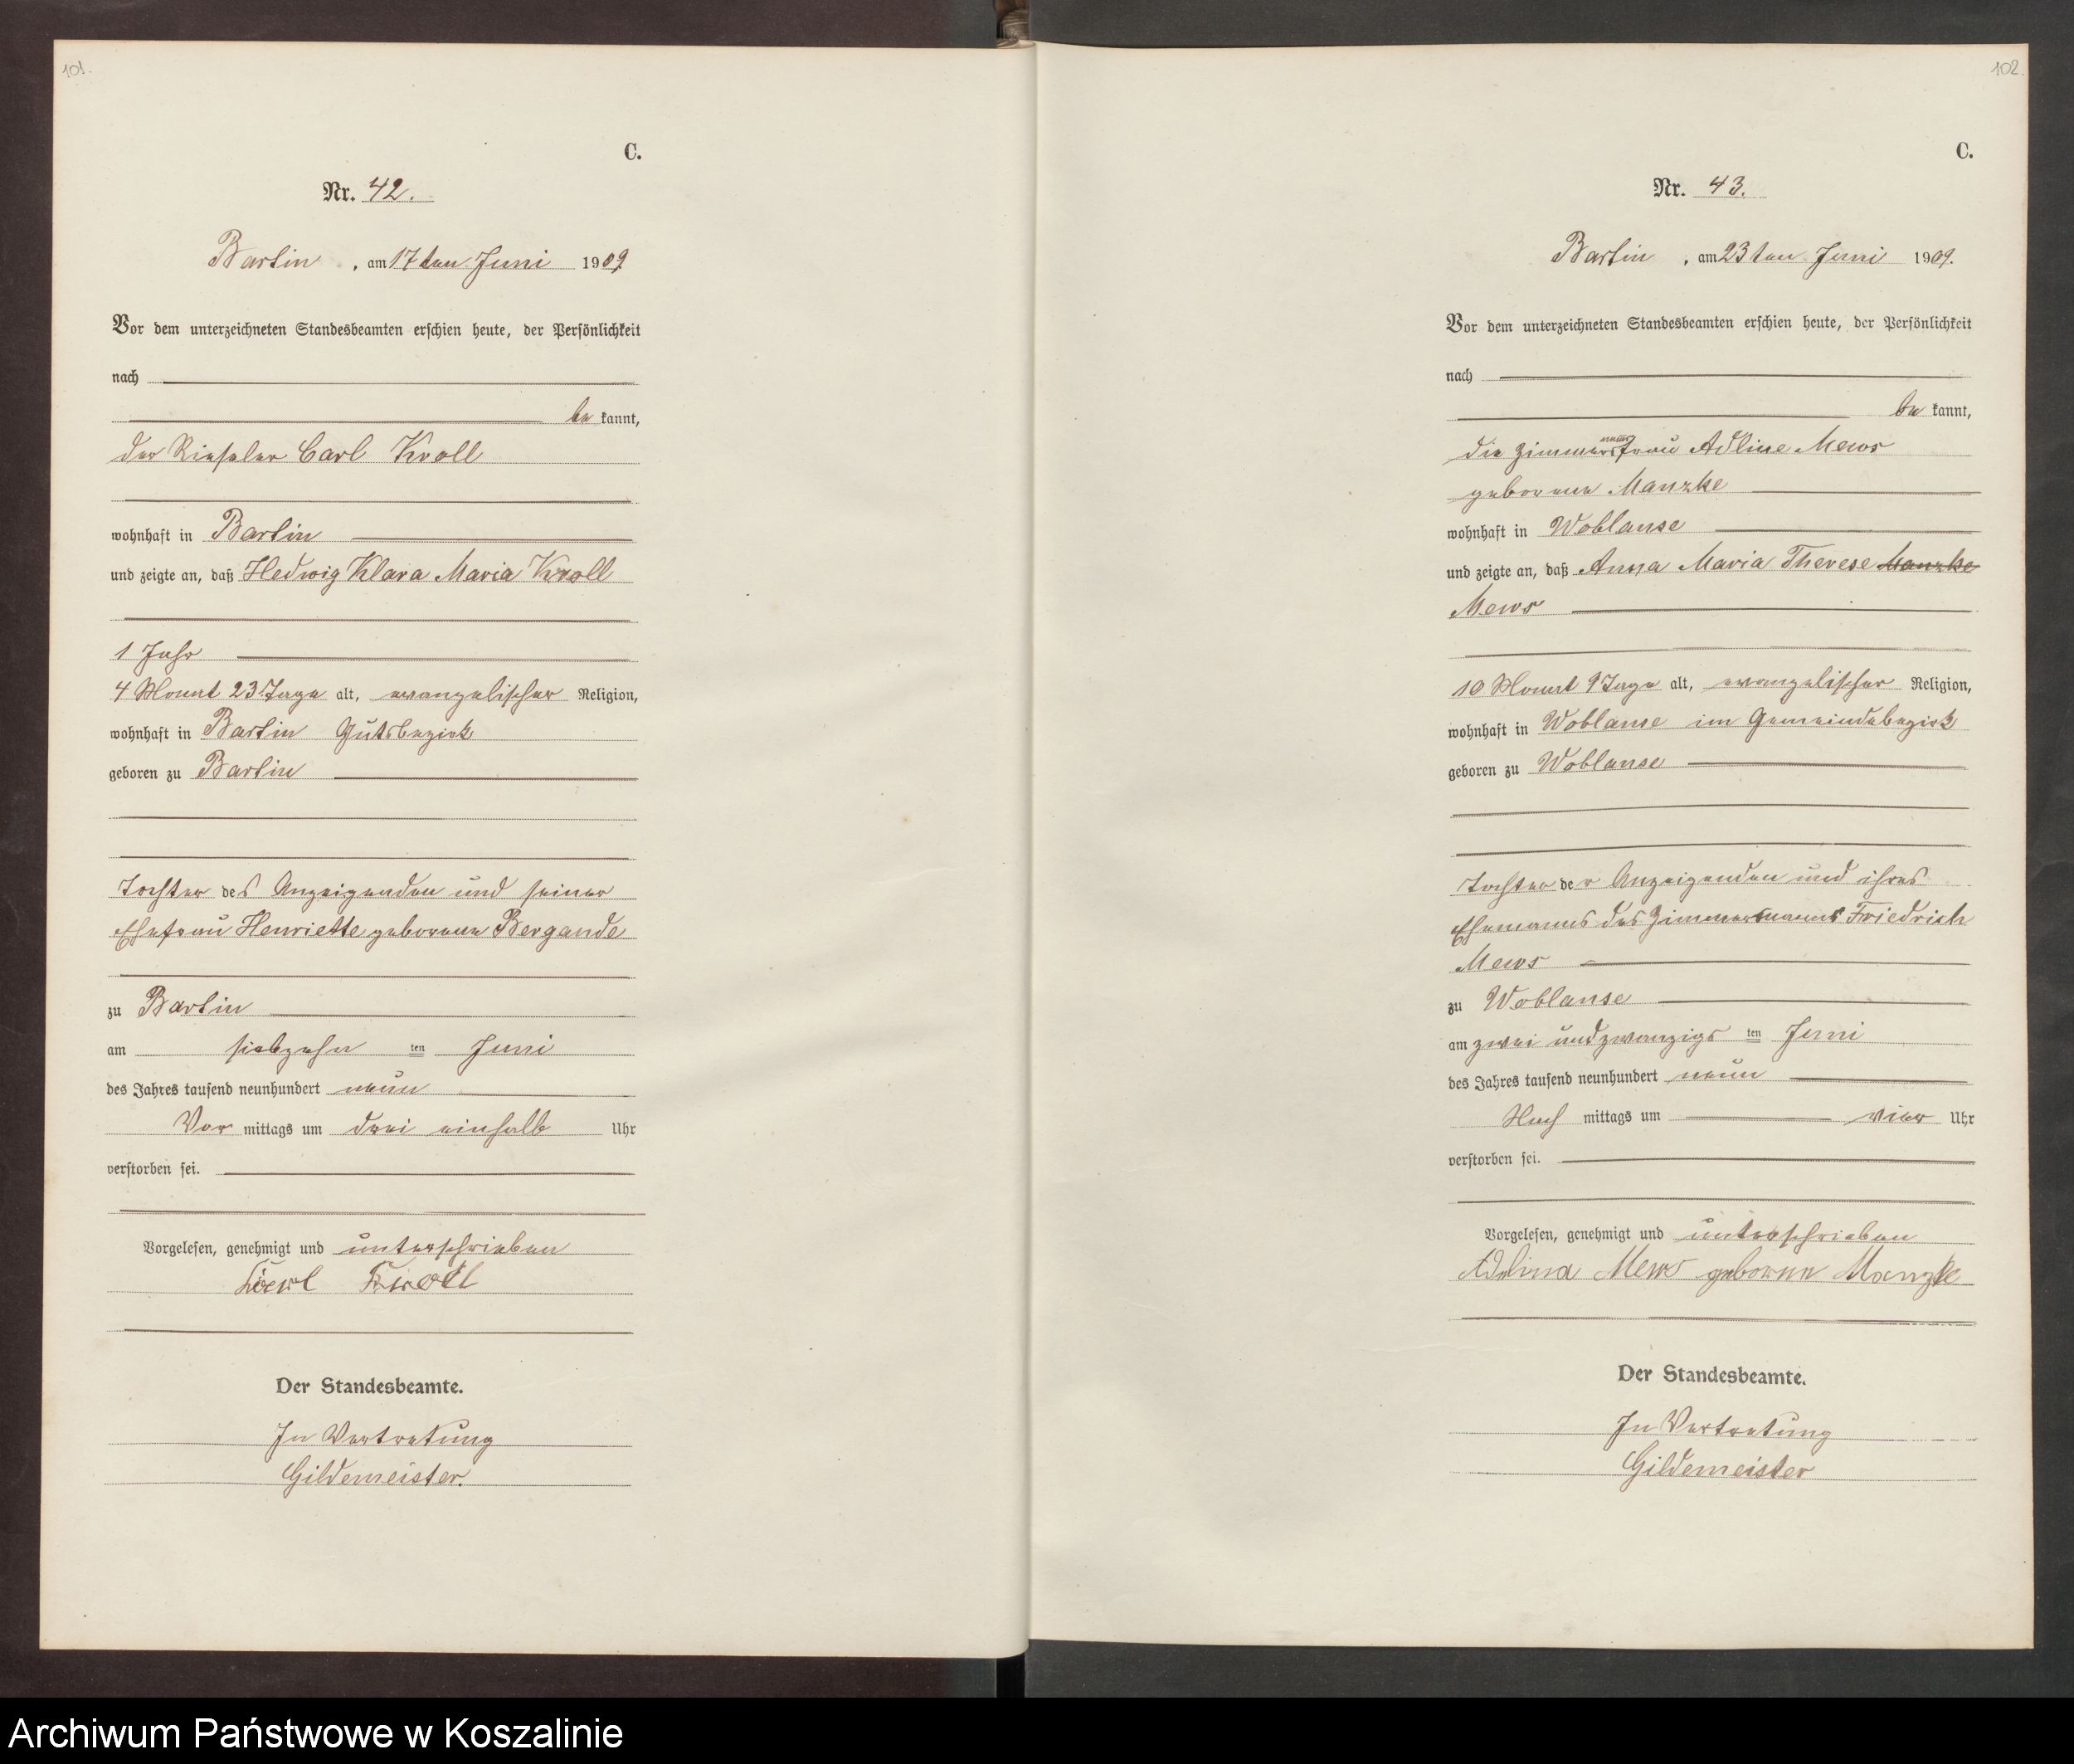 101.
C.
Nr. 42.
Bartin, am 17ten Juni 1909
Vor dem unterzeichneten Standesbeamten erschien heute, der Persönlichkeit
nach
be kannt,
der Rieseler Carl Kroll
wohnhaft in Bartin
und zeigte an, daß Hedwig Klara Maria Kroll
1 Jahr
4 Monat 23 Tage alt, evangelischer Religion,
wohnhaft in Bartin Gutsbezirk
geboren zu Bartin
Tochter des Anzeigenden und seiner
Ehefrau Henriette geborene Bergande
zu Bartin
am siebzehn ten Juni
des Jahres tausend neunhundert neun
Vor mittags um drei einhalb Uhr
verstorben sei.
Vorgelesen, genehmigt und unterschrieben
Karl Kroll
Der Standesbeamte.
In Vertretung
Gildemeister.
102.
C.
Nr. 43.
Bartin, am 23ten Juni 1909.
Vor dem unterzeichneten Standesbeamten erschien heute, der Persönlichkeit
nach
be kannt,
die Zimmermannsfrau Adline Mews
geborene Manzke
wohnhaft in Woblanse
und zeigte an, daß Anna Maria Therese Manzke
Mews
10 Monat 9 Tage alt, evangelischer Religion,
wohnhaft in Woblanse im Gemeindebezirk
geboren zu Woblanse
Tochter der Anzeigenden und ihres
Ehemanns des Zimmermanns Friedrich
Mews
zu Woblanse
am zwei und zwanzigs ten Juni
des Jahres tausend neunhundert neun
Nach mittags um vier Uhr
verstorben sei.
Vorgelesen, genehmigt und unterschrieben
Adelina Mews geboren Manzke
Der Standesbeamte.
In Vertretung
Gildemeister
Archiwum Państwowe w Koszalinie